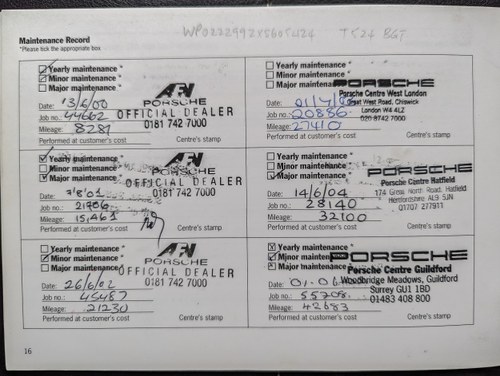 Maintenance Record
*Please tick the appropriate box
T524 BGT
Yearly maintenance *
Minor maintenance *
Major maintenance *
AFN
PORSCHE
OFFICIAL DEALER
0181 742 7000
Date: 13/6/00
Job no.: 44662
Mileage: 8281
Performed at customer's cost
Centre's stamp
Yearly maintenance *
Minor maintenance *
Major maintenance *
PORSCHE
Porsche Centre West London
Great West Road, Chiswick
London W4 4LZ
020 8742 7000
Date:
Job no.: 20886
Mileage: 27410
Performed at customer's cost
Centre's stamp
Yearly maintenance *
Minor maintenance *
Major maintenance *
AFN
PORSCHE
OFFICIAL DEALER
0181 742 7000
Date: 7/8/01
Job no.: 21706
Mileage: 15,461
Performed at customer's cost
Centre's stamp
Yearly maintenance *
Minor maintenance *
Major maintenance *
PORSCHE
Porsche Centre Hatfield
174 Great North Road, Hatfield
Hertfordshire AL9 5JN
01707 277911
Date: 14/6/04
Job no.: 28140
Mileage: 32100
Performed at customer's cost
Centre's stamp
Yearly maintenance *
Minor maintenance *
Major maintenance *
AFN
PORSCHE
OFFICIAL DEALER
0181 742 7000
Date: 26/6/02
Job no.: 45487
Mileage: 21230
Performed at customer's cost
Centre's stamp
Yearly maintenance *
Minor maintenance *
Major maintenance *
PORSCHE
Porsche Centre Guildford
Woodbridge Meadows, Guildford
Surrey GU1 1BD
01483 408 800
Date:
Job no.: 55208
Mileage: 42683
Performed at customer's cost
Centre's stamp
16